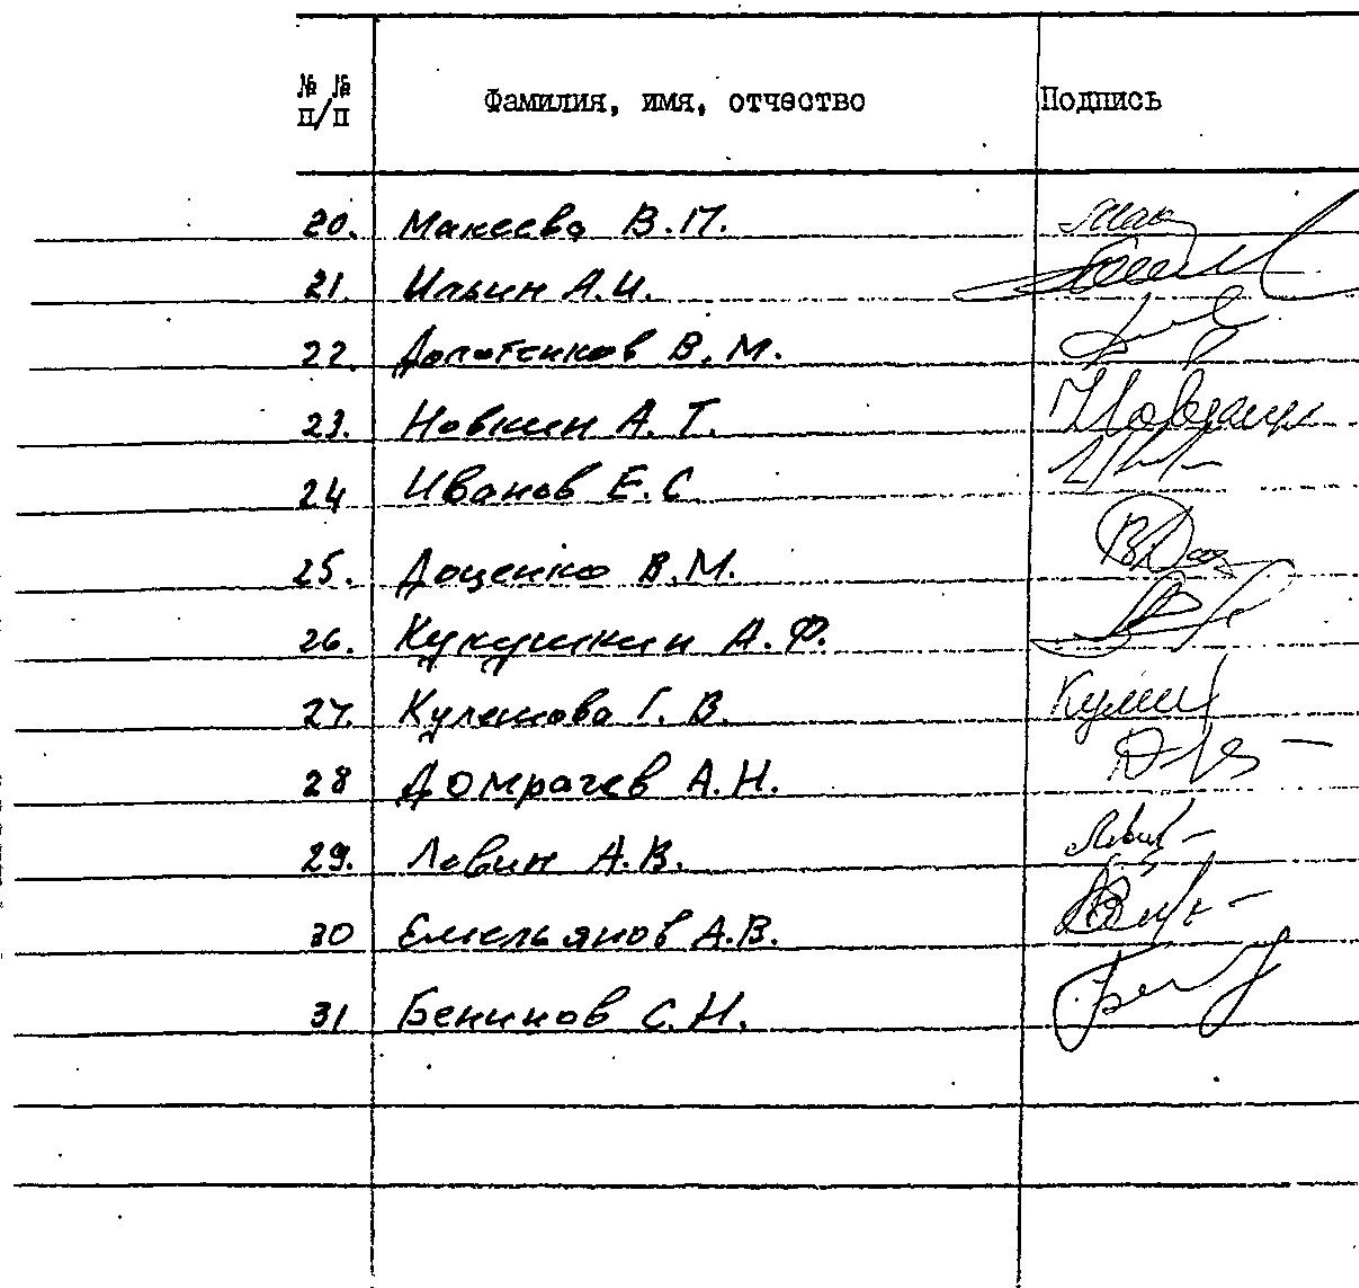 № № п/п Фамилия, имя, отчество Подпись
20. Макеева В.П.
21. Ильин А.И.
22. Долотенков В.М.
23. Новкин А.Т.
24 Иванов Е.С
25. Доценко В.М.
26. Кукушкин А.Ф.
27. Кулешова Г.В.
28 Домрачев А.Н.
29. Лавин А.В.
30 Емельянов А.В.
31 Бенинов С.Н.